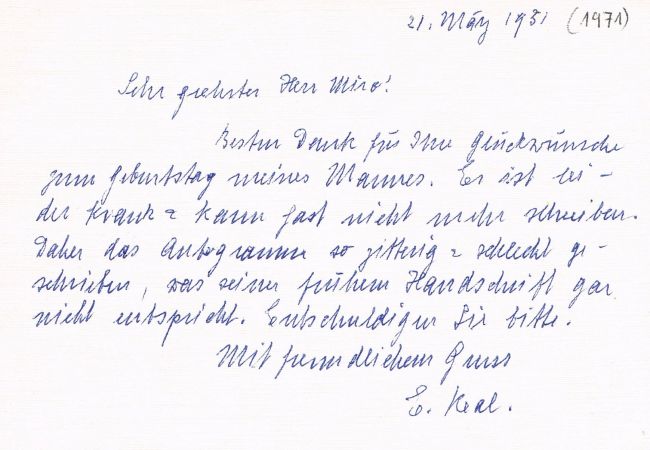 21. März 1931 (1971)
Sehr geehrter Herr Miro!
Besten Dank für Ihre Glückwünsche
zum Geburtstag meines Mannes. Er ist lei-
der krank & kann fast nicht mehr schreiben.
Daher das Autogramm so zitterig & schlecht ge-
schrieben, was seiner frühern Handschrift gar
nicht entspricht. Entschuldigen Sie bitte.
Mit freundlichem Gruss
E. Keal.